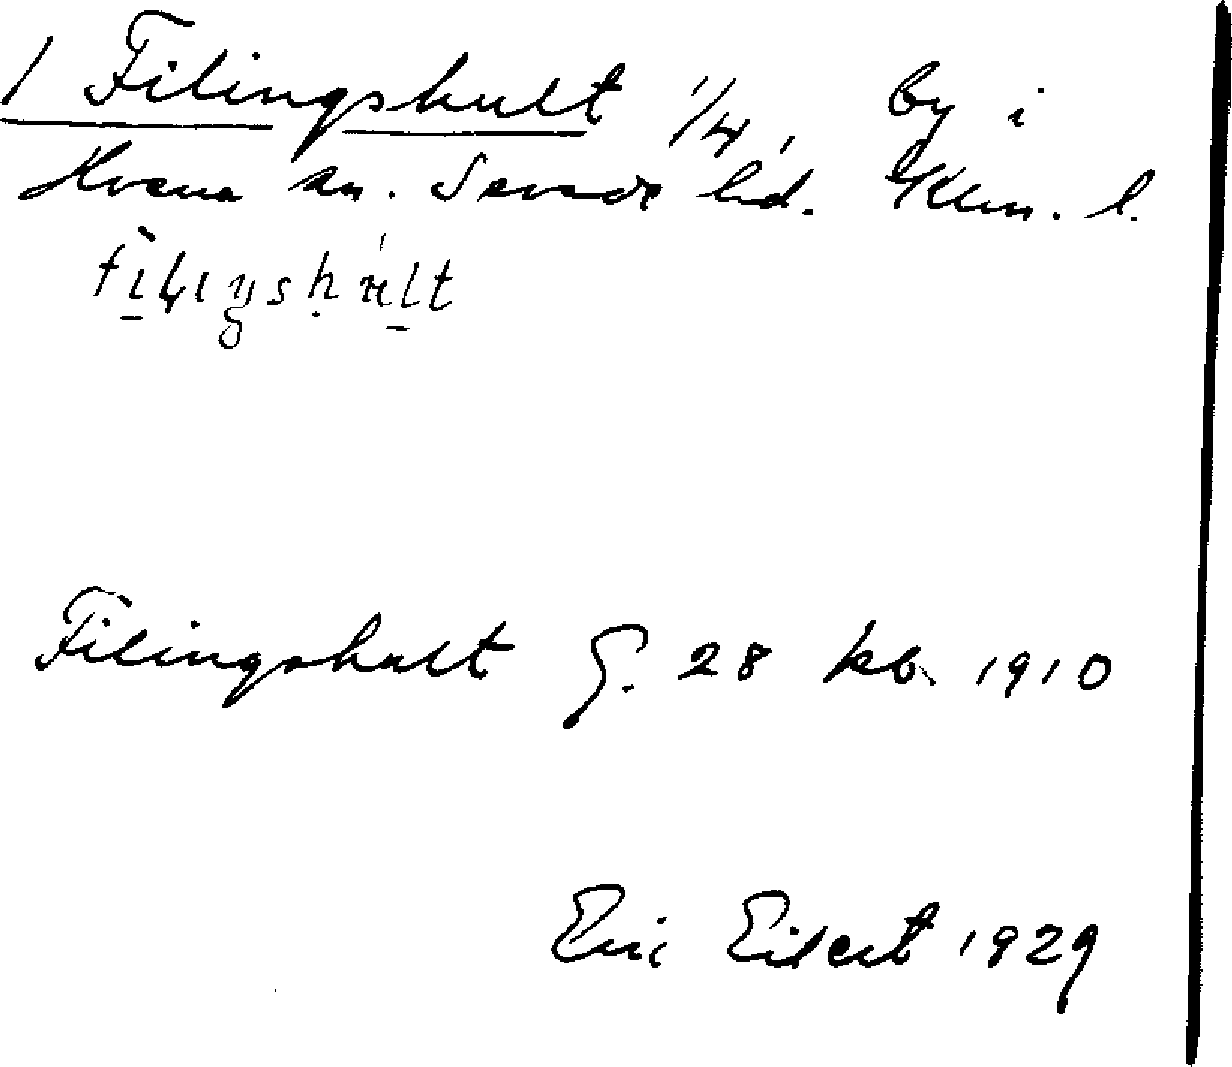 1 Filingshult 1/4, by i
Hvena sn. Sevede hd. Klm. l.
Filingshult G. 28 kb. 1910
Eric Eilert 1929